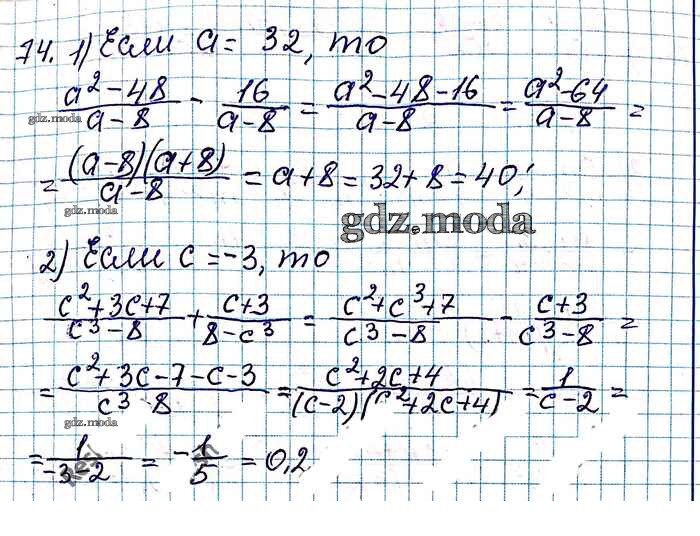 74. 1) Если a = 32, то
(a² – 48)/(a – 8) – 16/(a – 8) = (a² – 48 – 16)/(a – 8) = (a² – 64)/(a – 8) =
gdz.moda
= (a – 8)(a + 8)/(a – 8) = a + 8 = 32 + 8 = 40;
gdz.moda
gdz.moda
2) Если c = –3, то
(c² + 3c + 7)/(c³ – 8) + (c + 3)/(8 – c³) = (c² + c³ + 7)/(c³ – 8) – (c + 3)/(c³ – 8) =
= (c² + 3c – 7 – c – 3)/(c³ 8) = (c² + 2c + 4)/((c – 2)(c² + 2c + 4)) = 1/(c – 2) =
gdz.moda
= 1/(–3 – 2) = – 1/5 = 0,2